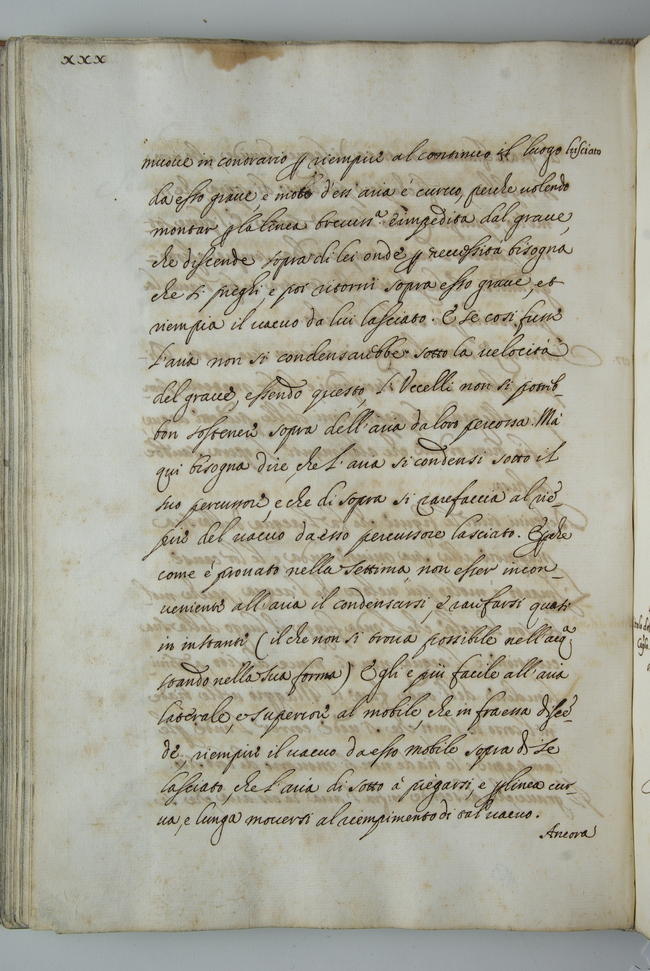 xxx
muove in contrario p riempire al continuo il luogo lasciato
da esso grave, e moto d'ess' aria è curvo, perche volendo
montar p la linea breviss.ª è impedita dal grave,
che discende sopra di lei onde p necessità bisogna
che si pieghi, e poi ritorni sopra esso grave, et
riempia il vacuo da lui lasciato. E se cosi fusse
l'aria non si condensarebbe sotto la velocità
del grave, essendo questo, l'Uccelli non si potreb-
bon sostener sopra dell'aria da loro percossa. Mà
qui bisogna dire, che l'aria si condensi sotto il
suo percussore, e che di sopra si rarefaccia al riē-
pire del vacuo da esso percussore lasciato. E pche
come è provato nella settima, non esser incon-
veniente all'aria il condensarsi, e rarefarsi quasi
in instante (il che non si trova possibile nell'acqª
stando nella sua forma) Egli e più facile all'aria
laterale, e superiore al mobile, che in fra essa discē-
de, riempire il vacuo da esso mobile sopra di se
lasciato, che l'aria di sotto à piegarsi, e p linea cur-
va, e lunga moversi al riempimento di tal vacuo.
Ancora